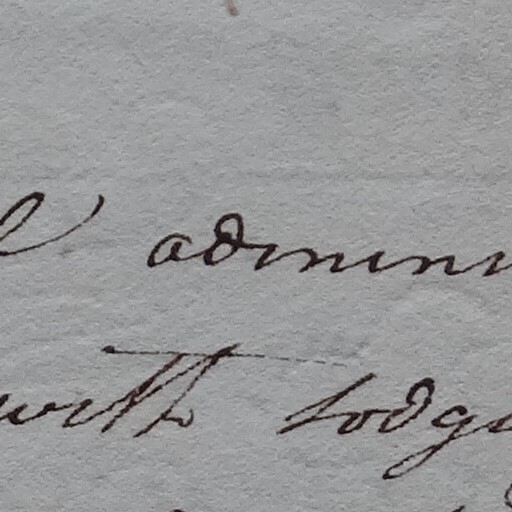 admini
with lodge